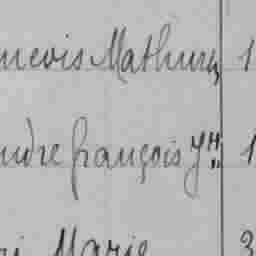 ncois Mathurin 1
ndre françois Jh 1
ri Marie 3